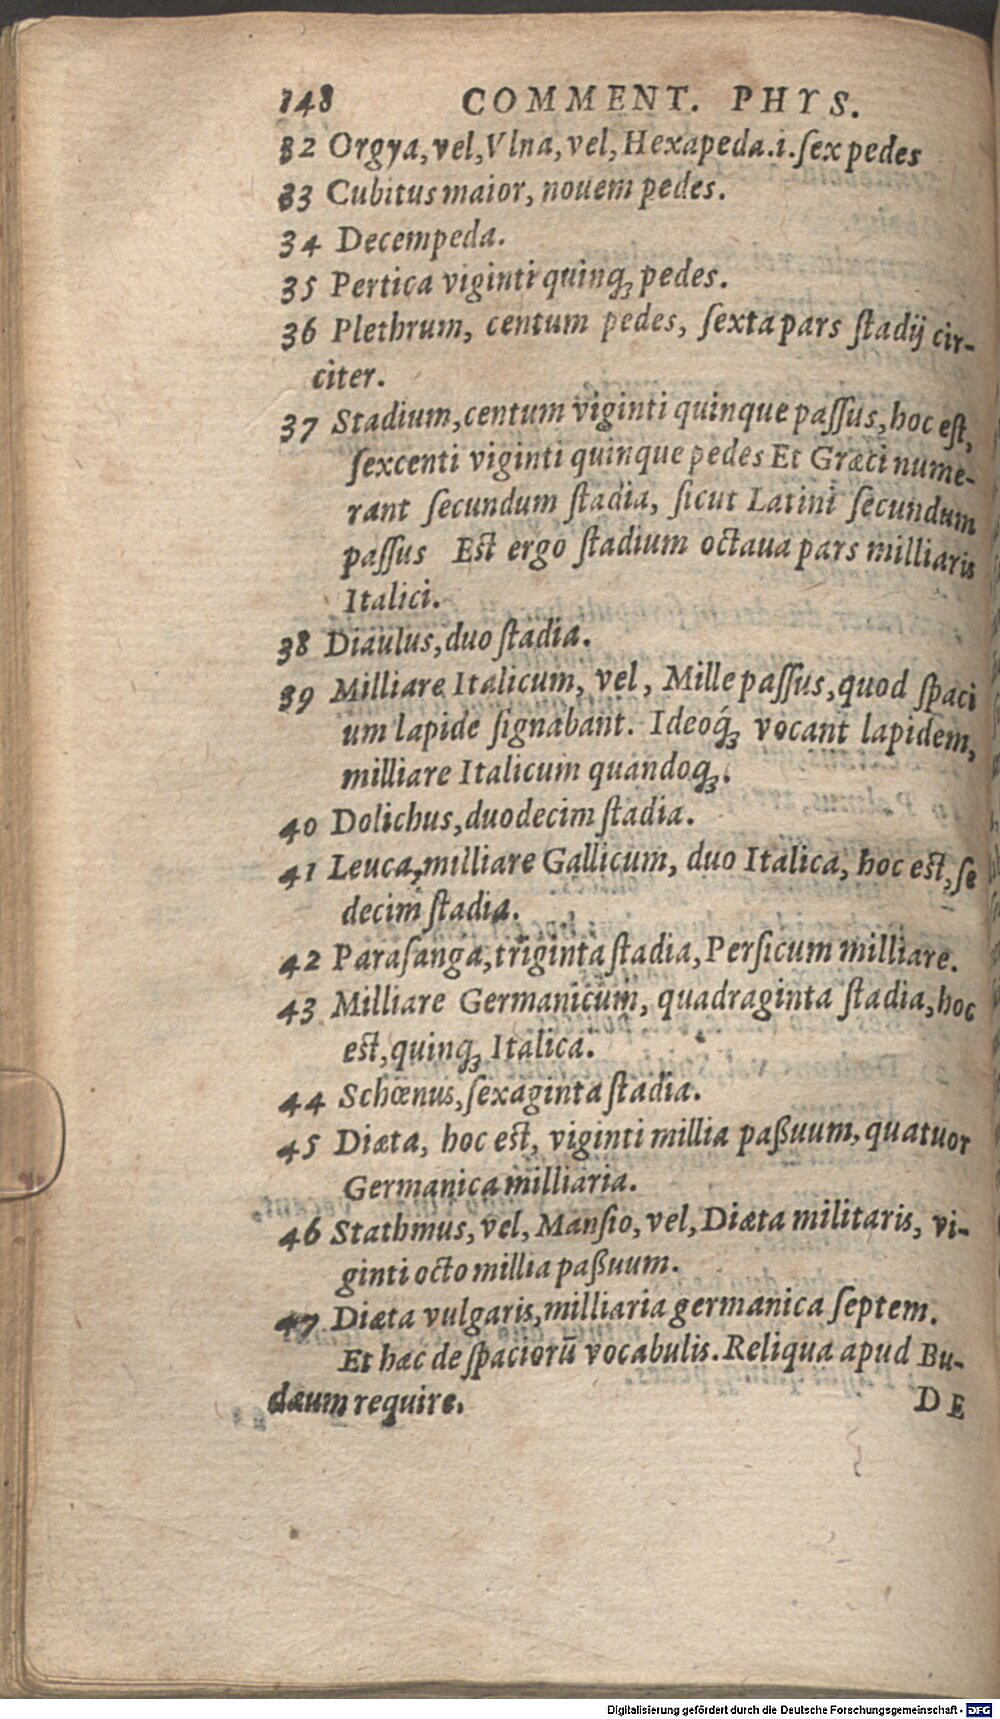 148 COMMENT. PHYS.
32 Orgya, vel, Vlna, vel, Hexapeda .i. ſex pedes
33 Cubitus maior, nouem pedes.
34 Decempeda.
35 Pertica viginti quinq; pedes.
36 Plethrum, centum pedes, ſexta pars ſtadij cir-
citer.
37 Stadium, centum viginti quinque paſſus, hoc eſt,
ſexcenti viginti quinque pedes Et Græci nume-
rant ſecundum ſtadia, ſicut Latini ſecundum
paſſus Eſt ergo ſtadium octaua pars milliaris
Italici.
38 Diaulus, duo ſtadia.
39 Milliare Italicum, vel, Mille paſſus, quod ſpaci
um lapide ſignabant. Ideoq́; vocant lapidem,
milliare Italicum quandoq;.
40 Dolichus, duodecim ſtadia.
41 Leuca, milliare Gallicum, duo Italica, hoc eſt, ſe
decim ſtadia.
42 Paraſanga, triginta ſtadia, Perſicum milliare.
43 Milliare Germanicum, quadraginta ſtadia, hoc
eſt, quinq; Italica.
44 Schœnus, ſexaginta ſtadia.
45 Diæta, hoc eſt, viginti millia paßuum, quatuor
Germanica milliaria.
46 Stathmus, vel, Manſio, vel, Diæta militaris, vi-
ginti octo millia paßuum.
47 Diæta vulgaris, milliaria germanica ſeptem.
Et hæc de ſpaciorū vocabulis. Reliqua apud Bu-
dæum require.
DE
Digitalisierung gefördert durch die Deutsche Forschungsgemeinschaft - DFG